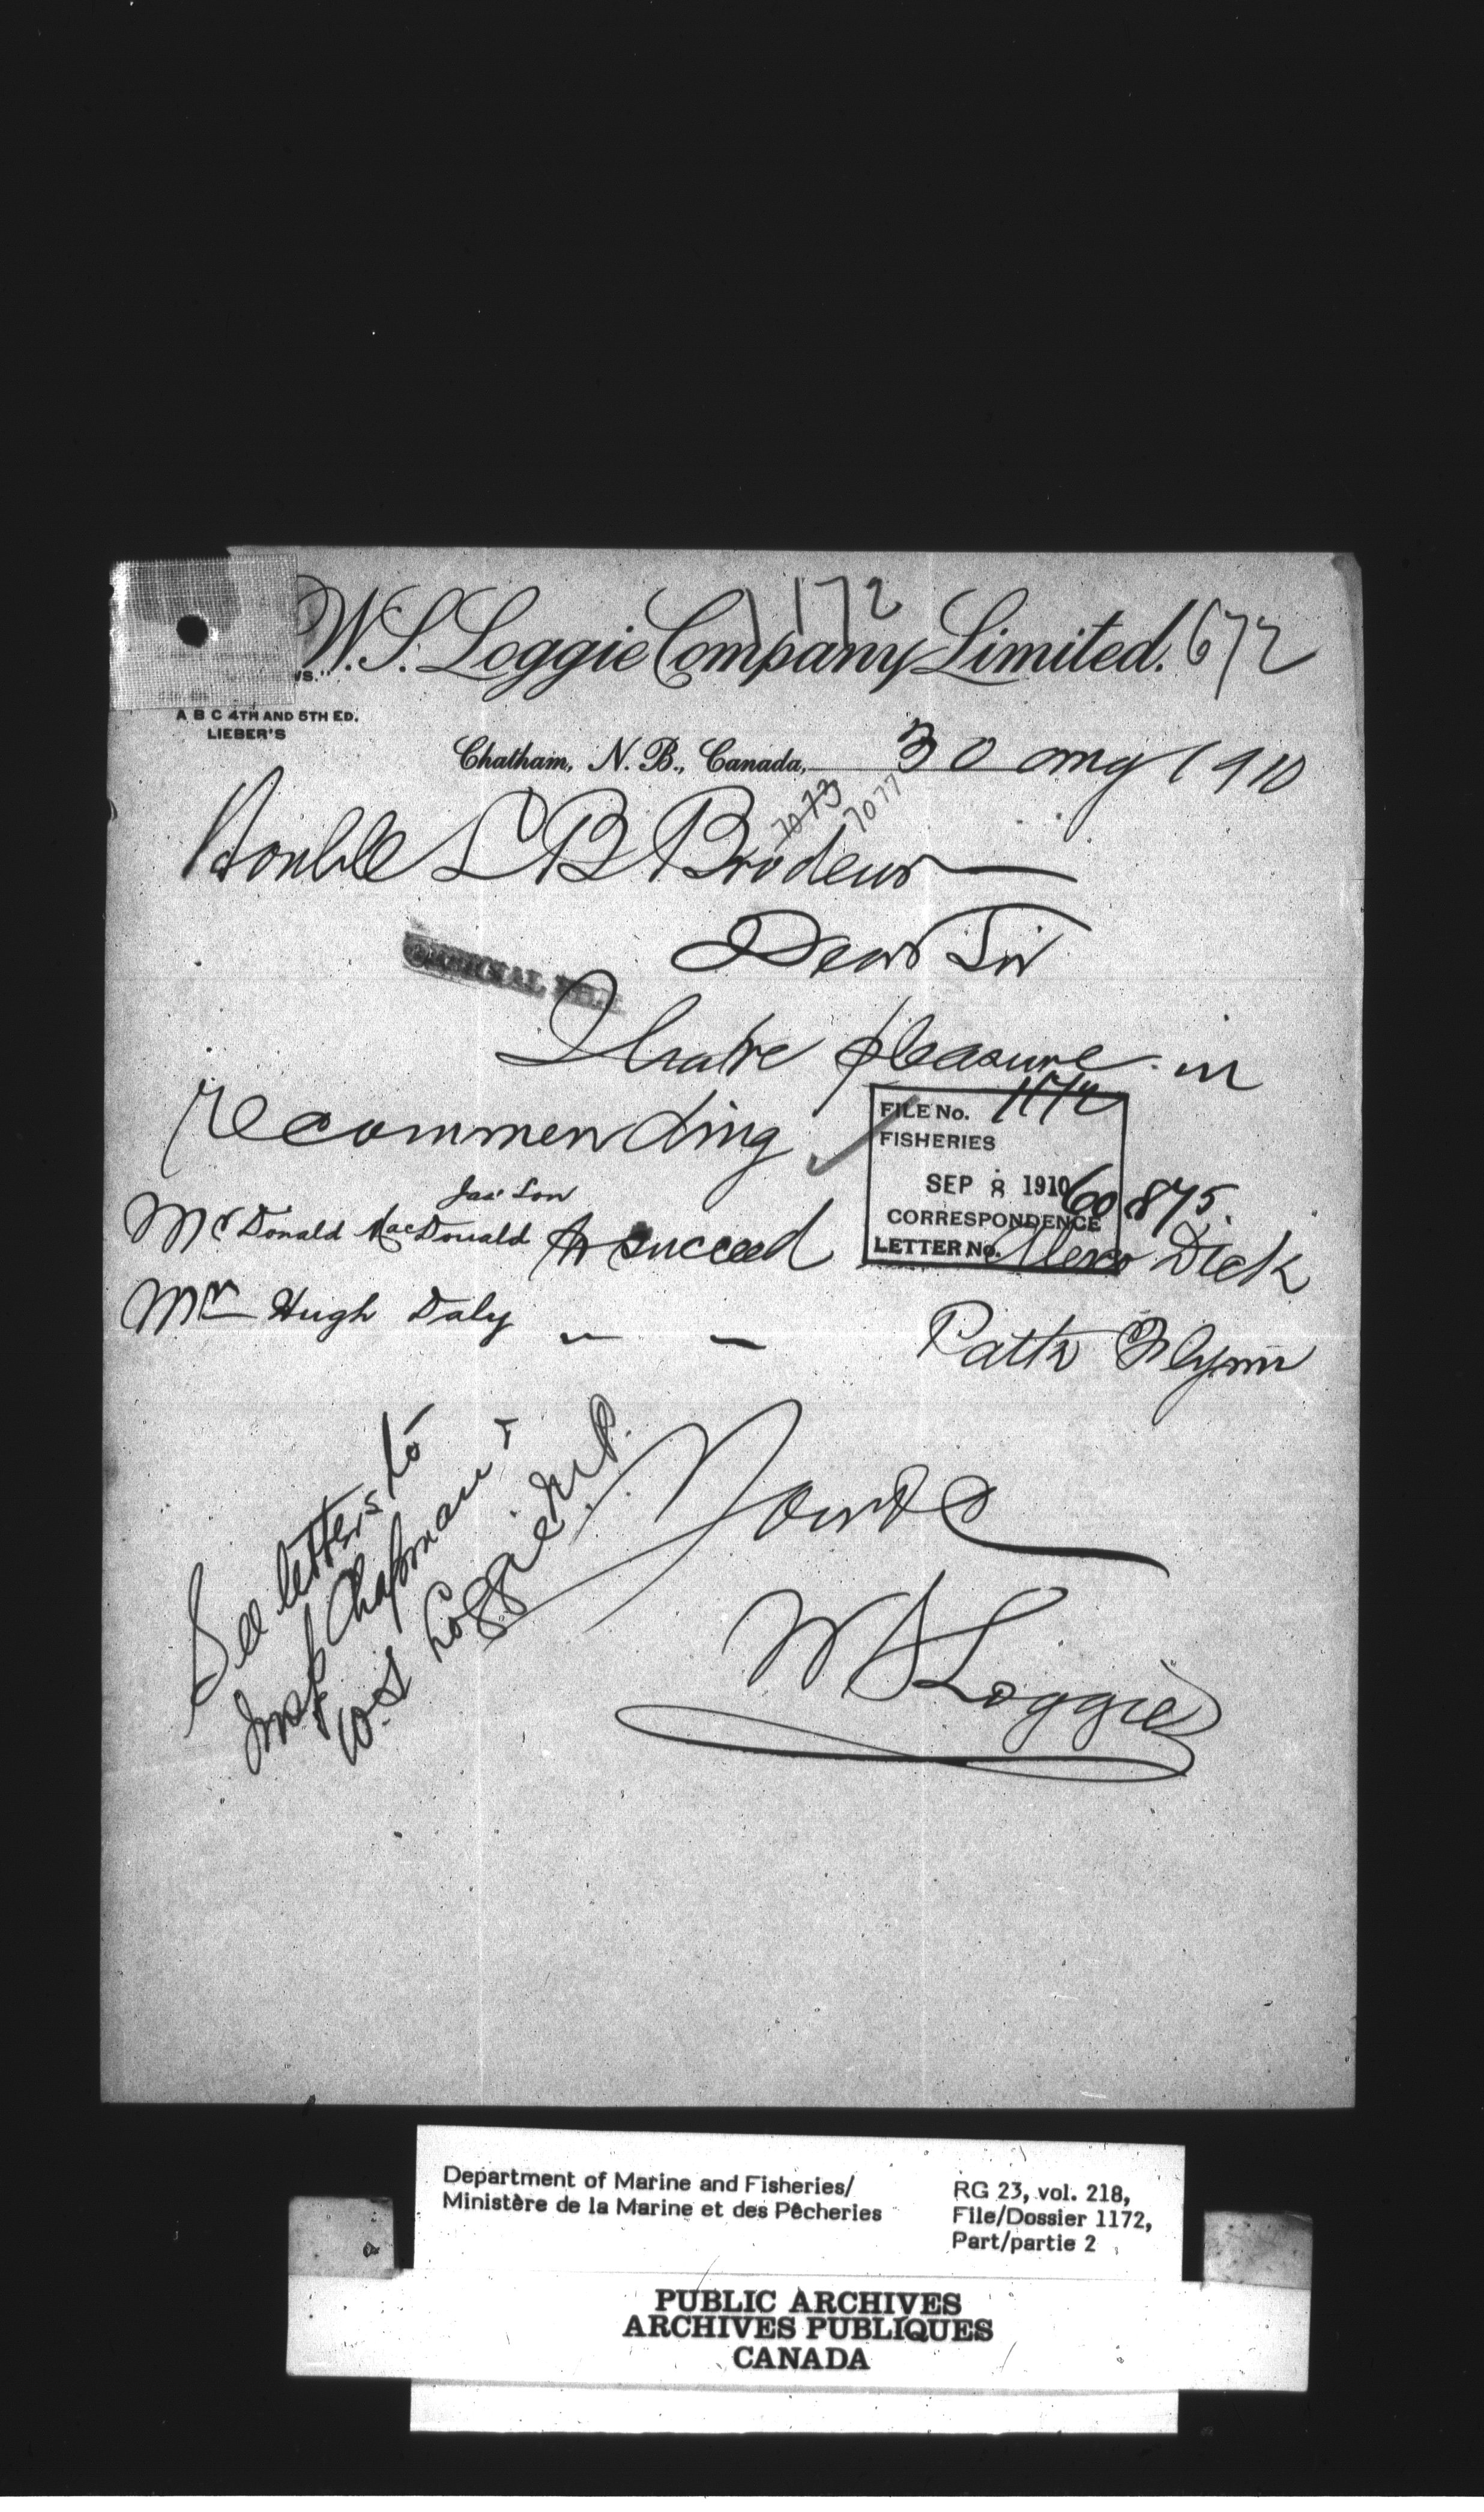 1172
W. S. Loggie Company Limited. 672
WS."
A B C 4TH AND 5TH ED.
LIEBER'S
Chatham, N. B., Canada, 30 Aug 1910
1073 1077
Honble L B Brodeur
Dear Sir
I have pleasure in
recommending
FILE No. 1172
FISHERIES
SEP 8 1910 60875.
CORRESPONDENCE
LETTER No.
Jas' Son
Mr Donald MacDonald to succeed Alexr Dick
Mr Hugh Daly " " Patk Flynn
Yours
W S Loggie
See letters to
Insp Chapman &
W.S Loggie M.P.
Department of Marine and Fisheries/
Ministère de la Marine et des Pêcheries
RG 23, vol. 218,
File/Dossier 1172,
Part/partie 2
PUBLIC ARCHIVES
ARCHIVES PUBLIQUES
CANADA